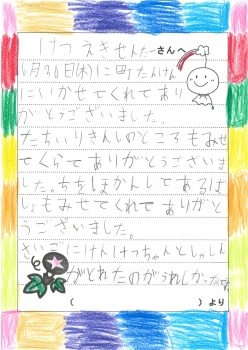 けつえきせんたーさんへ
6月20日(木)に町たんけん
にいかせてくれてあり
がとうございました。
たちいりきんしのところもみせ
てくらてありがとうございま
した。ちをほかんしてあるば
しょもみせてくれてありがと
うございました。
さいごにけんけつちゃんとしゃしん
がとれたのがうれしかったです。
( )より